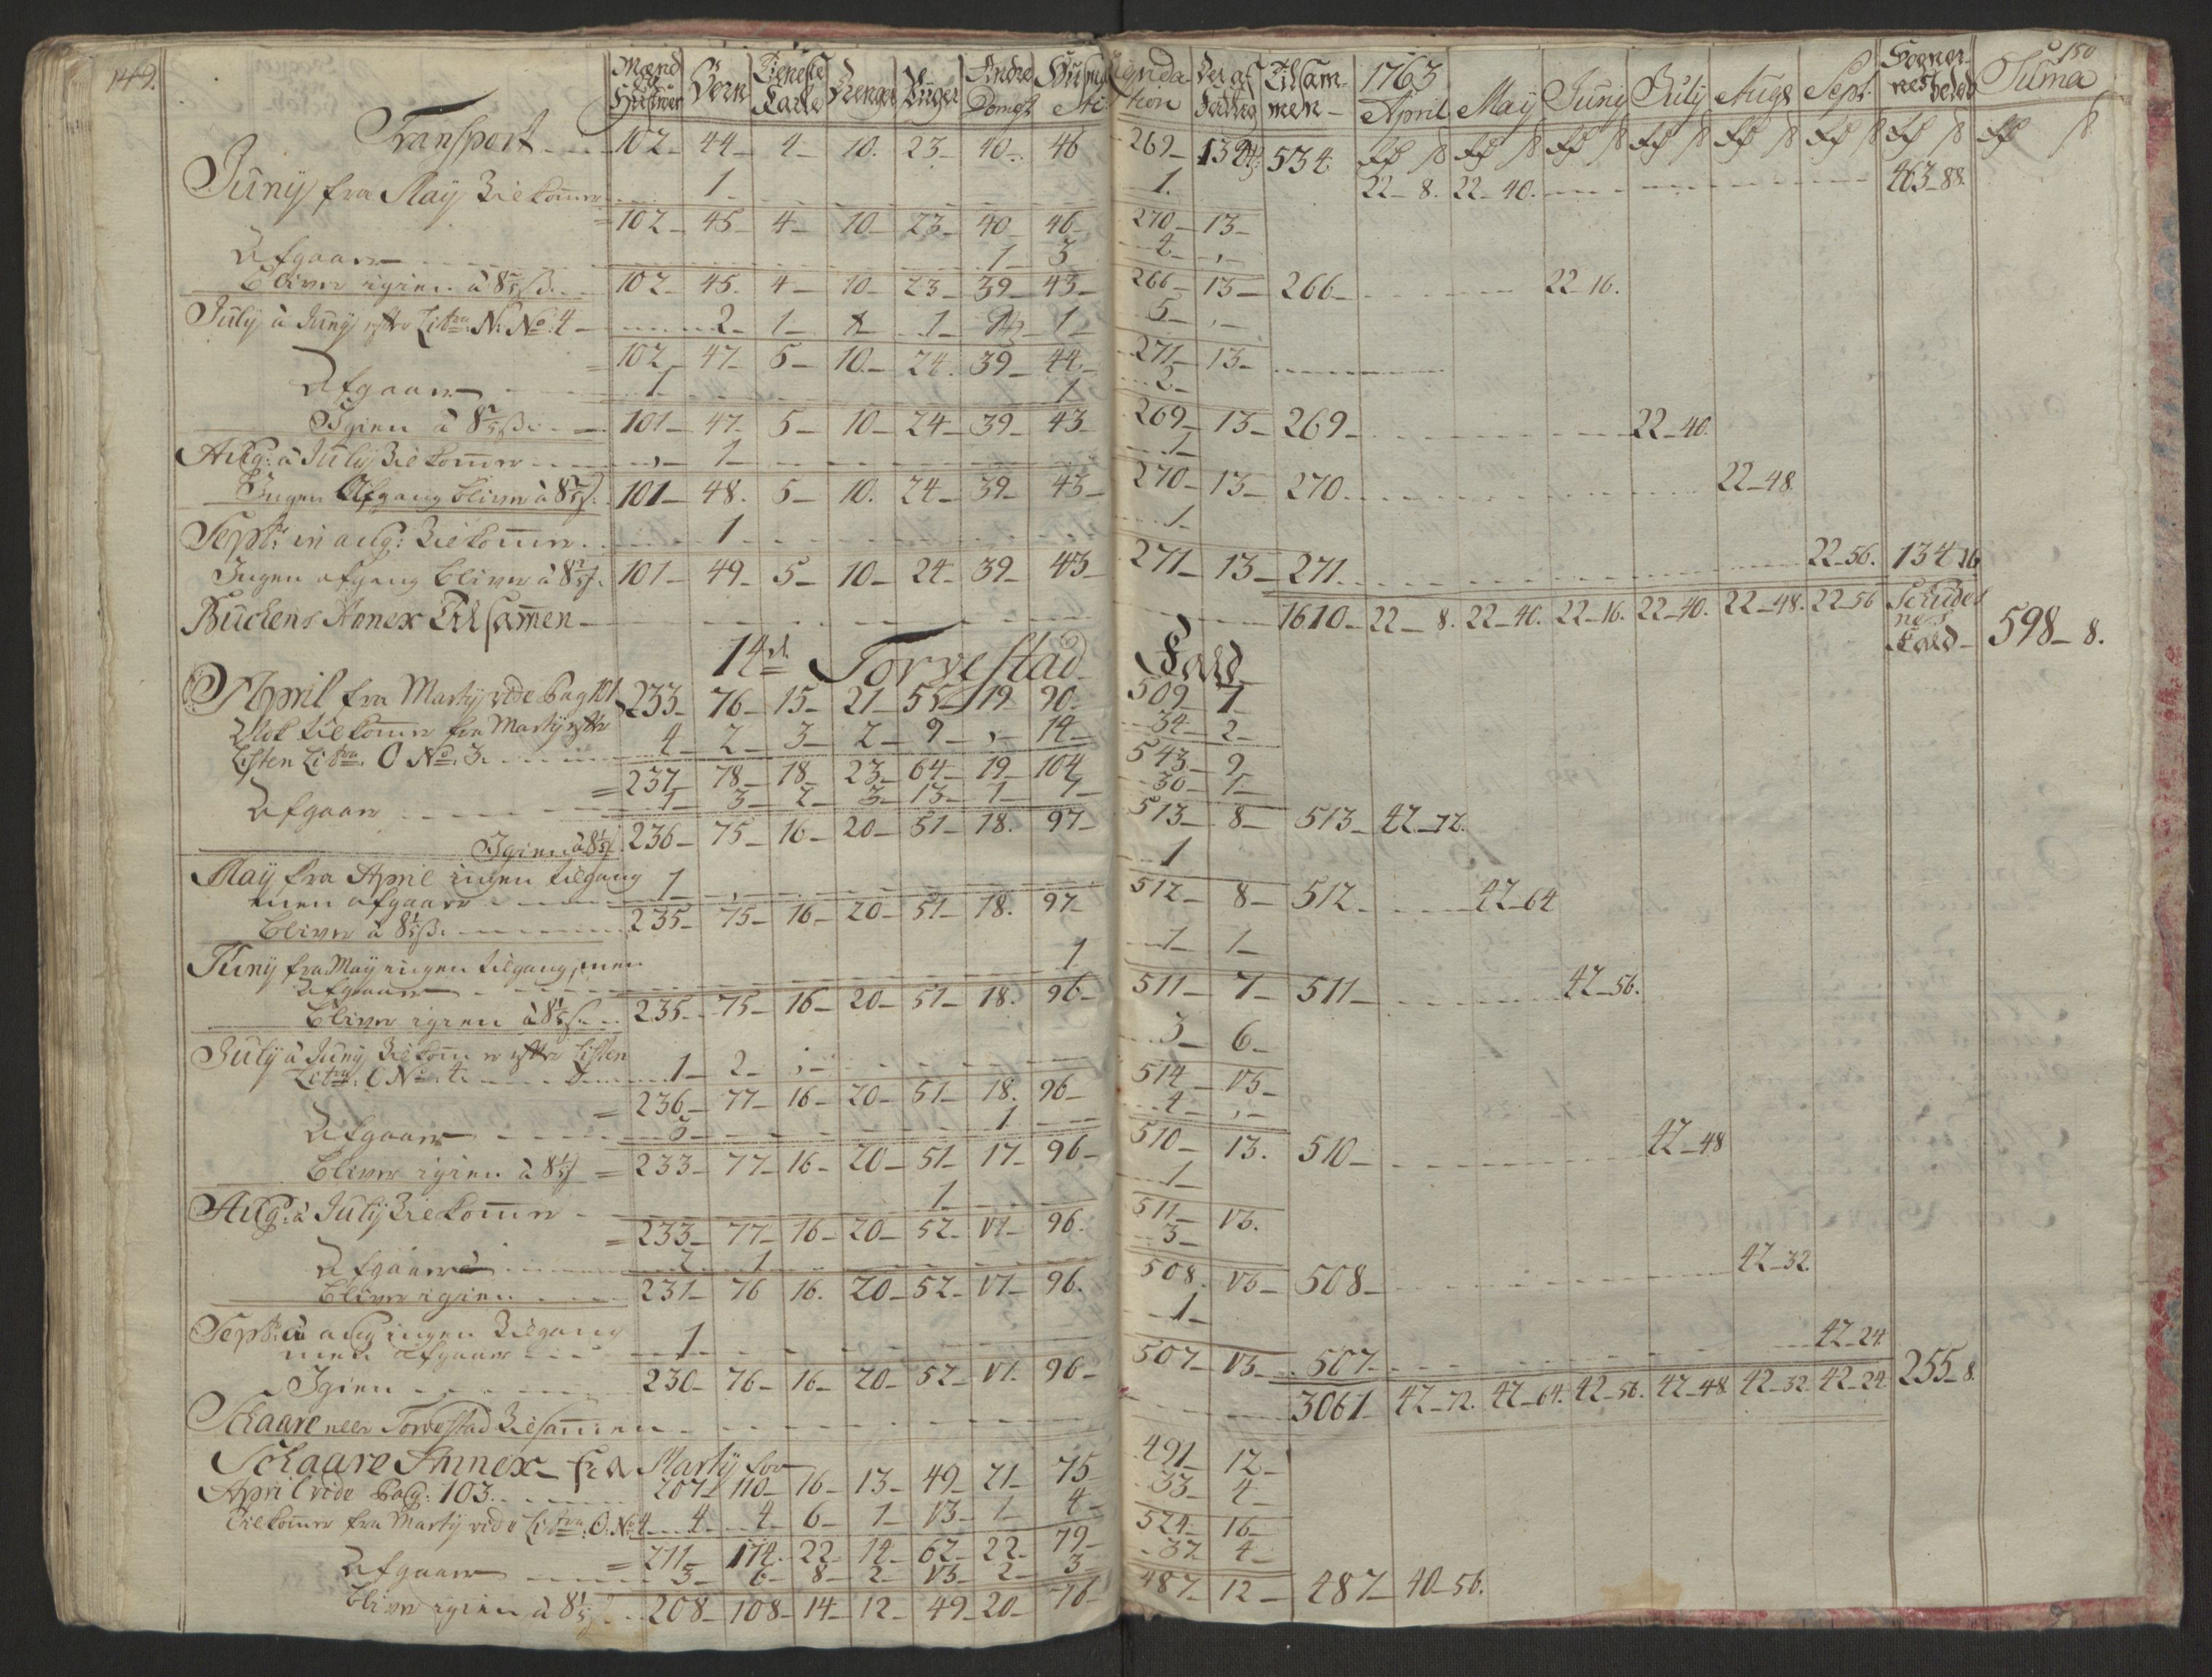 149. Mænd og Hustruer Børn Tieneste Karle Drenge Piger Andre Hussmænd
1763 Tilsammen April May Juny July Aug: Sept: Suma 150
Transport 102 44 4 10. 23 40 46 269 13 534
22 8. 22 40. 463 88
Juny fra May Tilkommer 1 1.
102 45 4 10 23 40 46 270 13
Afgaar 1 3 4
bliver igien à 8 102 45. 4 10 23 39 43 266 13 266 22 16.
July à Juny efter Litra N: No: 4 2 1 1 1 5
102 47 5 10 24. 39 44 271 13
Afgaar 1 1 2
Igien à 8 101 47 5 10 24 39 43 269 13 269 22 40.
Aug: à July Tilkommer 1 1
Ingen Afgang bliver à 8 101 48. 5 10. 24 39 43 270 13 270 22 48.
Septr: à aug: Tilkommer 1 1
Ingen afgang bliver à 8 101 49 5 10 24 39 43 271 13 271 22 56. 134 16
Buckens Annex Tilsamen 1610 22 8. 22 40. 22 16. 22 40. 22 48. 22 56 598 8.
14de Torvestad
April fra Marty vide pag 101 233 76 15 21 55 19 90 509 7
tilkommer fra Marty efter 4 2 3 2 9 14 34 2
Listen Litra: O No: 3.
237 78 18 23 64 19 104 543 9
Afgaar 1 3 2 3 13 1 7 30 1
Igien à 8 236 75 16 20 51 18. 97 513 8 513 42 72.
May fra April ingen tilgang 1
men afgaar 1
bliver à 8 235 75 16 20 51 18. 97 512 8 512 42 64
Juny fra May ingen tilgang, men 1 1 1
Afgaar
bliver igien à 8 235 75 16 20 51 18. 96 511 7 511 42 56.
July à Juny Tilkommer efter Listen 3 6
Litra: O No: 4. 1 2
236 77 16 20 51 18. 96 514 13
Afgaar 3 1 4
bliver igien à 8 233 77 16 20 51 17 96 510 13. 510 42 48
Aug: à July Tilkommer 1 1
233 77 16 20 52 17 96. 511 13.
Afgaar 2 1 3
bliver igien 231 76 16. 20 52 17 96. 508. 13 508 42 32.
Septr: à aug ingen Tilgang 1
men afgaar 1
Igien 230 76 16 20 52 17. 96 507 13 507 42 24
Torvestad Tilsamen 3061 42 72. 42 64. 42 56. 42 48. 42 32. 42 24 255 8.
Schaare Annex fra Marty for
April vide pag: 103. 207 110 16 13 49 21 75 491 12
tilkommer fra Marty vide Litra: O: No 4 4 4 6 1 13 1 4 33 4
211 114 22 14 62 22 79 524 16
Afgaar 3 6 8 2 13 2 3 37 4
bliver igien à 8 208 108 14 12 49 20 76 487 12 487 40 56.